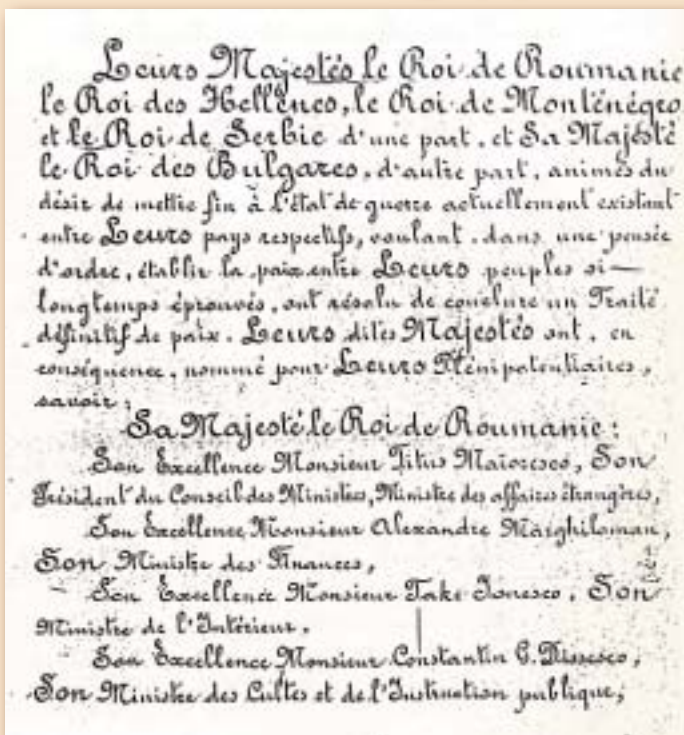 Leurs Majestés le Roi de Roumanie
le Roi des Hellènes, le Roi de Monténégro
et le Roi de Serbie d'une part, et Sa Majesté
le Roi des Bulgares, d'autre part, animés du
désir de mettre fin à l'état de guerre actuellement existant
entre Leurs pays respectifs, voulant, dans une pensée
d'ordre, établir la paix entre Leurs peuples si
longtemps éprouvés, ont résolu de conclure un Traité
définitif de paix. Leurs dites Majestés ont, en
conséquence, nommé pour Leurs Plénipotentiaires,
savoir:
Sa Majesté le Roi de Roumanie:
Son Excellence Monsieur Titus Maïoresco, Son
Président du Conseil des Ministres, Ministre des affaires étrangères,
Son Excellence Monsieur Alexandre Marghiloman,
Son Ministre des Finances,
Son Excellence Monsieur Take Jonesco, Son
Ministre de l'Intérieur.
Son Excellence Monsieur Constantin G. Dissesco,
Son Ministre des Cultes et de l'Instruction publique;